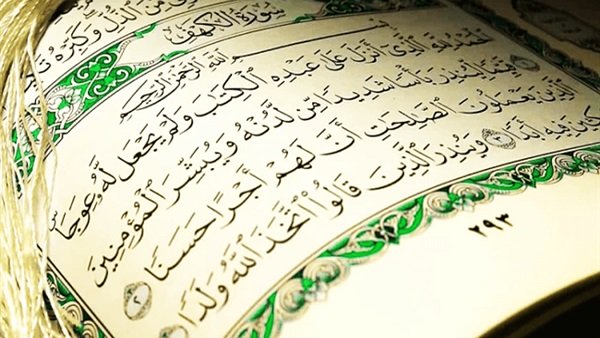 مِّنَ ٱلذُّلِّ وَكَبِّرْهُ
سُورَةُ الكَهْفِ
ٱللَّهِ ٱلرَّحْمَٰنِ ٱلرَّحِيمِ
ٱلْحَمْدُ لِلَّهِ ٱلَّذِىٓ أَنزَلَ عَلَىٰ عَبْدِهِ ٱلْكِتَٰبَ وَلَمْ يَجْعَل لَّهُۥ عِوَجَا
قَيِّمًا لِّيُنذِرَ بَأْسًا شَدِيدًا مِّن لَّدُنْهُ وَيُبَشِّرَ ٱلْمُؤْمِنِينَ
ٱلَّذِينَ يَعْمَلُونَ ٱلصَّٰلِحَٰتِ أَنَّ لَهُمْ أَجْرًا حَسَنًا ٢
فِيهِ أَبَدًا ٣ وَيُنذِرَ ٱلَّذِينَ قَالُوا۟ ٱتَّخَذَ ٱللَّهُ وَلَدًا
٢٩٣